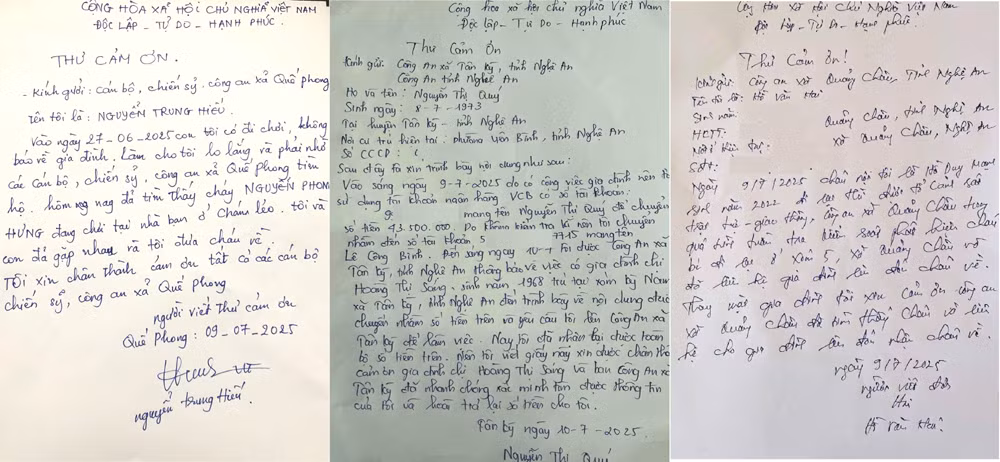 CỘNG HÒA XÃ HỘI CHỦ NGHĨA VIỆT NAM
ĐỘC LẬP - TỰ DO - HẠNH PHÚC.
THƯ CẢM ƠN.
- Kính gửi: cán bộ, chiến sỹ. công an xã Quế phong
Tên tôi là: NGUYỄN TRUNG HIẾU.
Vào ngày 27-06-2025 con tôi có đi chơi, không
báo về gia đình. Làm cho tôi lo lắng và phải nhờ
các cán bộ, chiến sỹ, công an xã Quế Phong tìm
hộ. hôm nay đã tìm thấy cháy NGUYỄN PHONG
HƯNG đang chơi tại nhà bạn ở Chám léo. tôi và
con đã gặp nhau và tôi đưa cháu về
TÔI xin chân thành cám ơn tất cả các cán bộ
chiến sỹ, công an xã Quế Phong
người viết thư cám ơn
Quế Phong: 09-07-2025
nguyễn trung Hiếu.
Cộng hòa xã hội chủ nghĩa Việt Nam
Độc lập - Tự Do - Hạnh phúc
Thư Cảm Ơn
Kính gửi: Công An xã Tân Kỳ, tỉnh Nghệ An
Công An tỉnh Nghệ An
Họ và tên: Nguyễn Thị Quý
Sinh ngày: 8-7-1973
Tại huyện Tân Kỳ - tỉnh Nghệ An
Nơi cư trú hiện tại: phường yên Bình, tỉnh Nghệ An
Số CCCD:
Sau đây tôi xin trình bày nội dung như sau:
Vào sáng ngày 9-7-2025 do có công việc gia đình nên tôi
sử dụng tài khoản ngân hàng VCB có số tài khoản:
9 mang tên Nguyễn Thị Quý để chuyển
số tiền 43.500.000. Do không kiểm tra kĩ nên tôi chuyển
nhầm đến số tài khoản 5 7715 mang tên
Lê Công Bình. Đến sáng ngày 10-7 Tôi được Công An xã
Tân Kỳ, tỉnh Nghệ An thông báo về việc có gia đình chị
Hoàng Thị Sang, sinh năm 1968 trú tại xóm Kỳ Nam
xã Tân Kỳ, tỉnh Nghệ An đến trình bày về nội dung được
chuyển nhầm số tiền trên và yêu cầu tôi lên Công An xã
Tân Kỳ để làm việc. Nay tôi đã nhận lại được toàn
bộ số tiền trên. Nên tôi viết giấy này xin được chân thành
cảm ơn gia đình chị Hoàng Thị Sang và ban Công An xã
Tân Kỳ đã nhanh chóng xác minh tìm được thông tin
của tôi và hoàn trả lại số tiền cho tôi.
Tân Kỳ ngày 10-7-2025.
Nguyễn Thị Quý
Cộng Hòa Xã Hội Chủ Nghĩa Việt Nam
Độc Lập - Tự Do - Hạnh phúc.
Thư Cảm Ơn!
Kính gửi: công an xã Quảng Châu, Tỉnh Nghệ An
Tên tôi là: Hồ Văn Hải
Sinh năm:
HKTT: Quảng Châu, Tỉnh Nghệ An
Nơi hiện tại: xã Quảng Châu, Nghệ An
SĐT:
Ngày 9/7/2025 cháu nội tôi là Hồ Duy Mạnh
sinh năm 2022 đi lạc
giao thông, công an xã Quảng Châu
quá trình tuần tra kiểm soát phát hiện cháu
bị đi lạc ở Xóm 5, xã Quảng Châu và
đã liên hệ gia đình
gia đình tôi xin cảm ơn công an
xã Quảng Châu đã tìm thấy cháu và liên
hệ cho gia đình lên đón nhận cháu về.
ngày 9/7/2025
người viết đơn
Hải
Hồ Văn Hải.